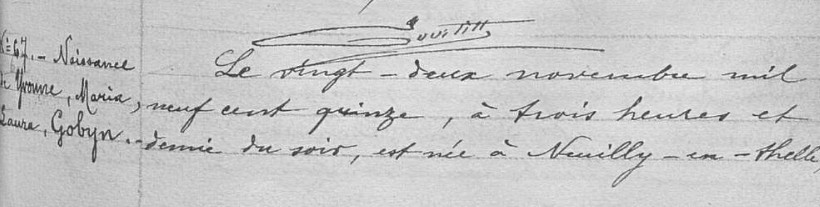 N° 67. - Naissance
de Yvonne, Maria,
Laure, Gobyn. -
Le vingt - deux novembre mil
neuf cent quinze, à trois heures et
demie du soir, est née à Neuilly - en - thelle,